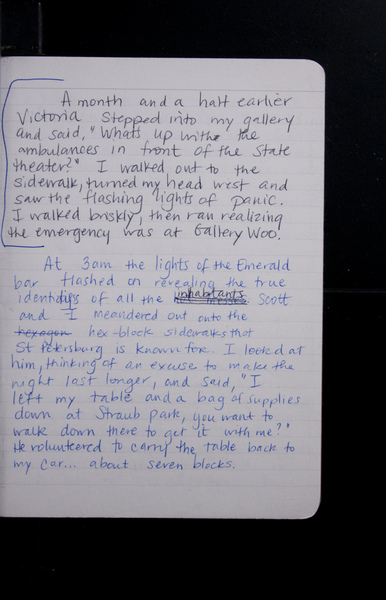 A month and a half earlier
Victoria stepped into my gallery
and said, "Whats up with the
ambulances in front of the State
theater?" I walked out to the
sidewalk, turned my head west and
saw the flashing lights of panic.
I walked briskly, then ran realizing
the emergency was at Gallery Woo.
At 3am the lights of the Emerald
bar flashed on revealing the true
identidys of all the inhabitants. Scott
and I meandered out onto the
hexagon hex-block sidewalks that
St Petersburg is known for. I looked at
him, thinking of an excuse to make the
night last longer, and said, "I
left my table and a bag of supplies
down at Straub park, you want to
walk down there to get it with me?"
He volunteered to carry the table back to
my car... about seven blocks.